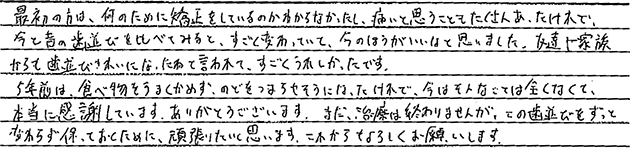 最初の方は、何のために矯正をしているのかわからなかったし、痛いと思うことてたくさんあったけれど、
今と昔の歯並びを比べてみると、すごく変わっていて、今のほうがいいなと思いました。友達や家族
からも歯並びきれいになったねって言われて、すごくうれしかったです。
5年前は、食べ物をうまくかめず、のどをつまらせそうになったけれど、今はそんなことは全くなくて、
本当に感謝しています。ありがとうございます。まだ、治療は終わりませんが、この歯並びをずっと
変わらず保っておくために、頑張りたいと思います。これからもよろしくお願いします。